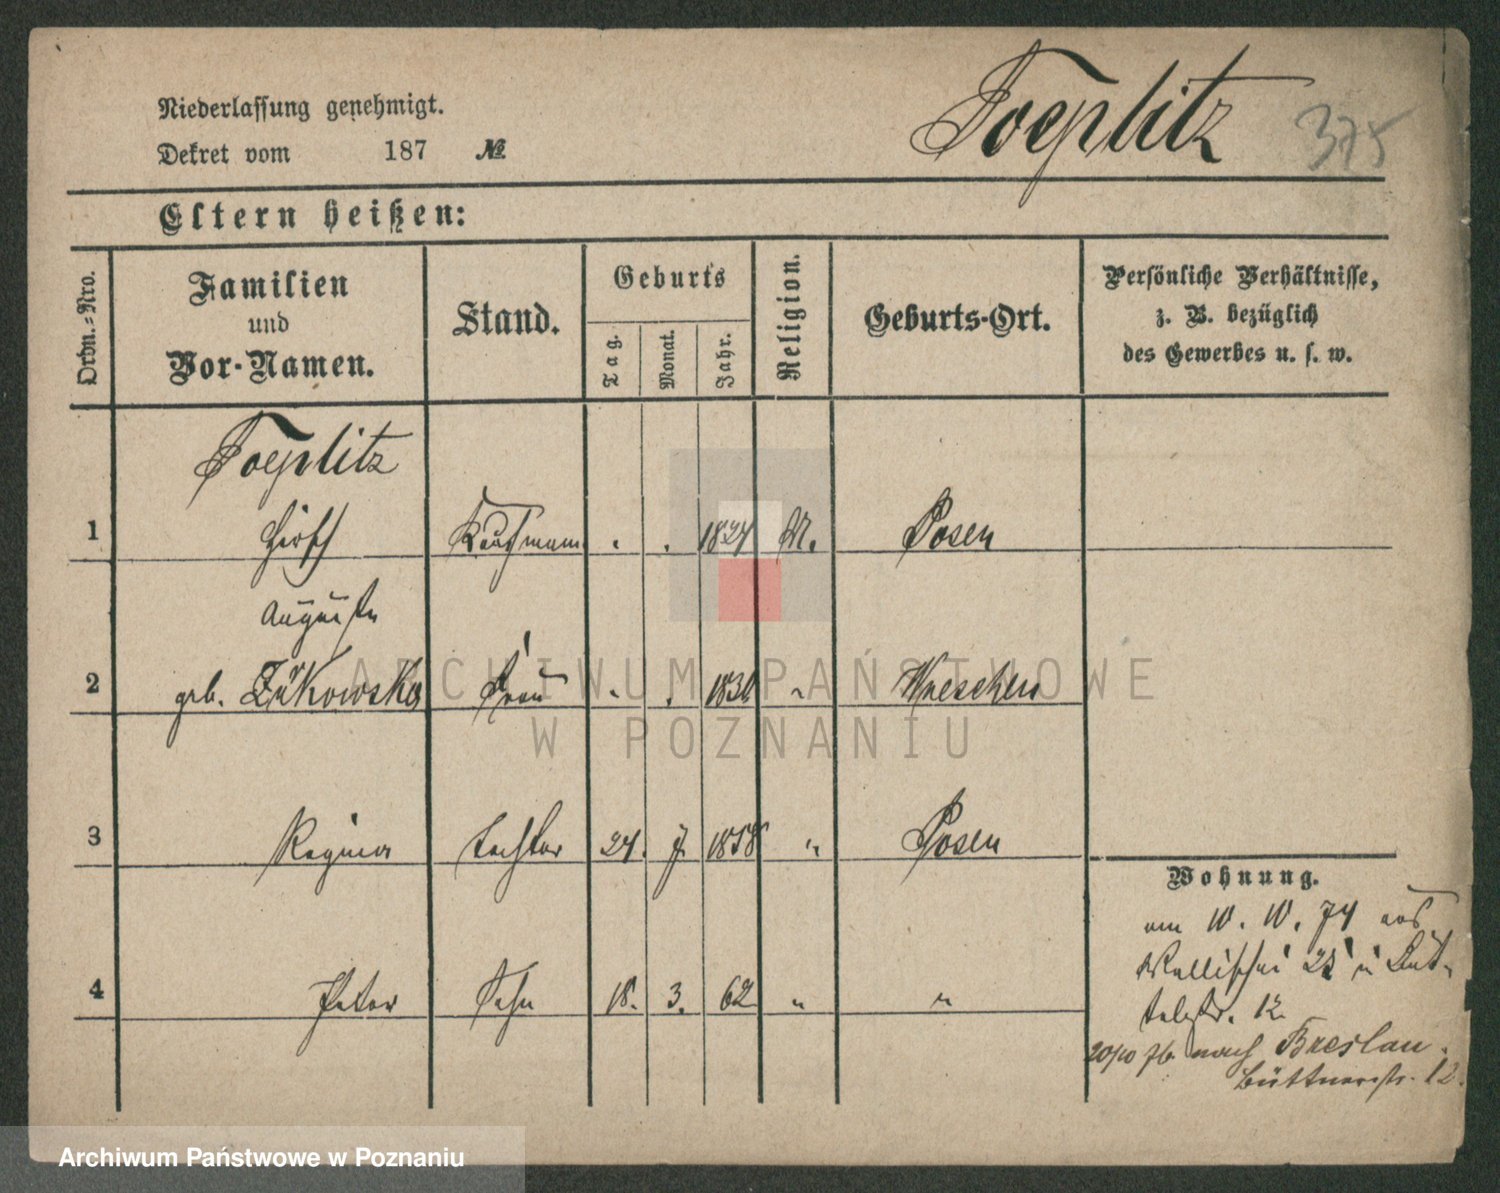 Niederlassung genehmigt.
Toeplitz 375
Dekret vom 187 №
Eltern heißen:
Ordn.-Nro.
Familien
und
Vor-Namen.
Stand.
Geburts
Tag.
Monat.
Jahr.
Religion.
Geburts-Ort.
Persönliche Verhältnisse,
z. B. bezüglich
des Gewerbes u. s. w.
Toeplitz
1 Hirsch Kaufmann . . 1827 M. Posen
Auguste
2 geb. Żurkowska Frau . . 1830 " Wreschen
3 Regina Tochter 24. 7. 1858 " Posen
4 Peter Sohn 18. 3. 62 " "
Wohnung.
am 10. 10. 74 aus
Wallischei
telstr. 12.
20/10 76 nach Breslau.
Büttnerstr. 12.
ARCHIWUM PAŃSTWOWE
W POZNANIU
Archiwum Państwowe w Poznaniu